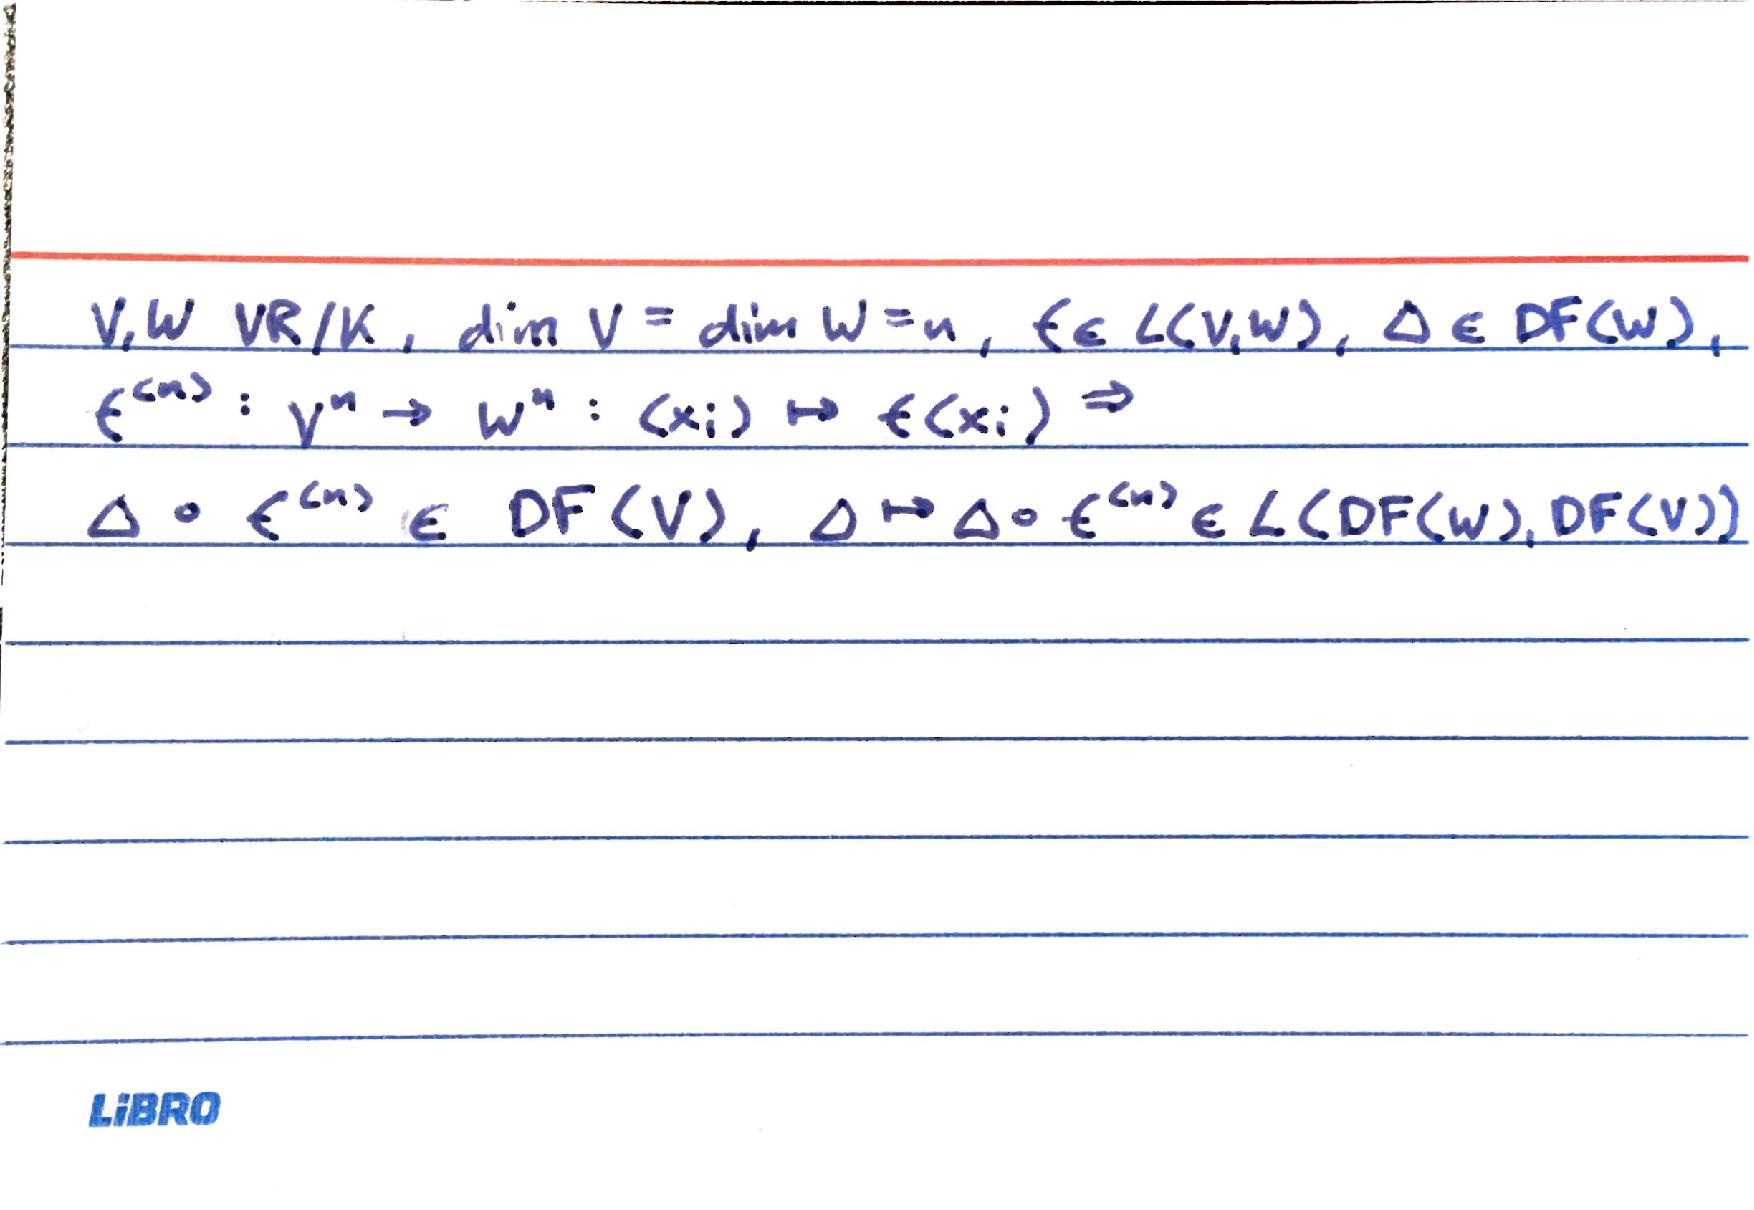 V, W VR/K, dim V = dim W = n, f ∈ L(V,W), Δ ∈ DF(W),
f⁽ⁿ⁾ : Vⁿ → Wⁿ : (xᵢ) ↦ f(xᵢ) ⇒
Δ ∘ f⁽ⁿ⁾ ∈ DF(V), Δ ↦ Δ ∘ f⁽ⁿ⁾ ∈ L(DF(W), DF(V))
LiBRO